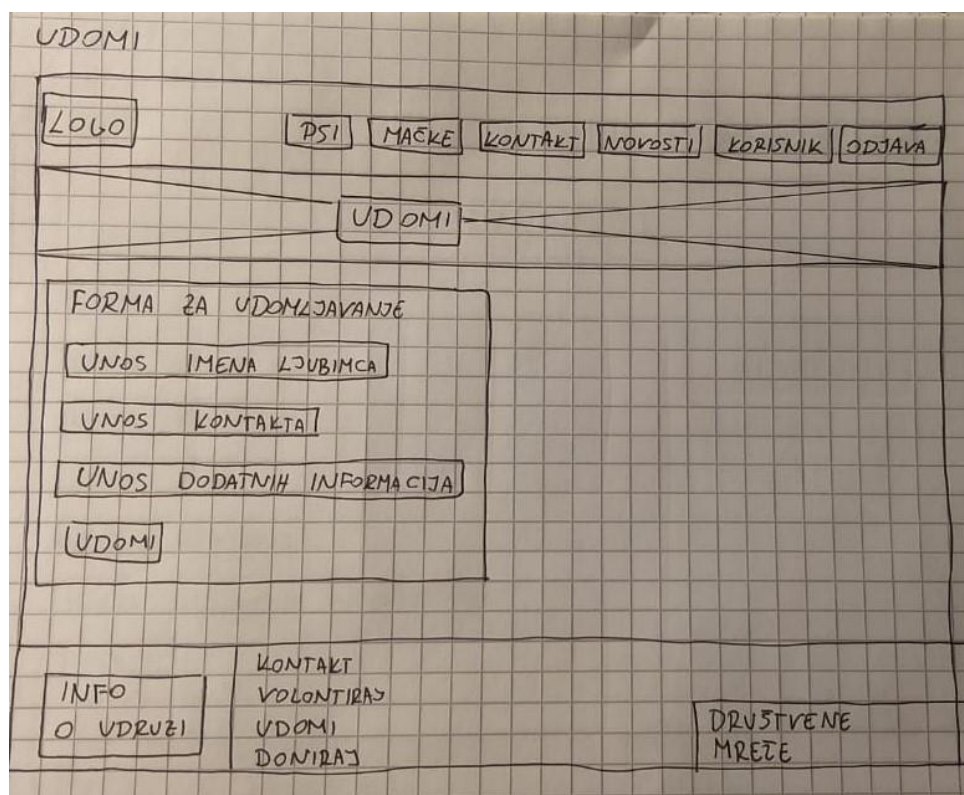 UDOMI
LOGO PSI MAČKE KONTAKT NOVOSTI KORISNIK ODJAVA
UDOMI
FORMA ZA UDOMLJAVANJE
UNOS IMENA LJUBIMCA
UNOS KONTAKTA
UNOS DODATNIH INFORMACIJA
UDOMI
INFO
O UDRUZI
KONTAKT
VOLONTIRAJ
UDOMI
DONIRAJ
DRUŠTVENE
MREŽE